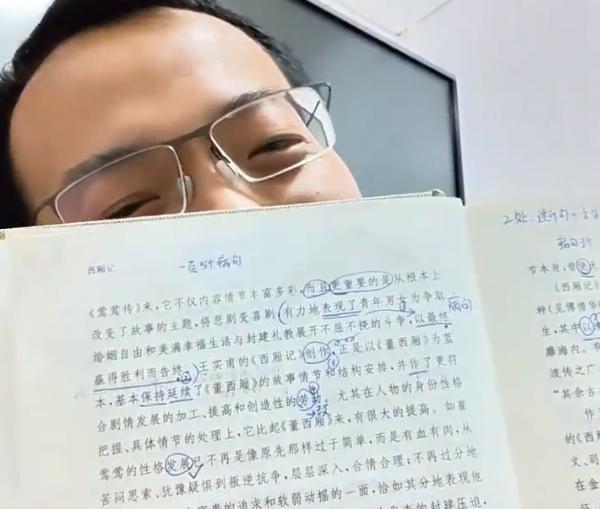 西厢记
一页5个病句
《莺莺传》来,它不仅内容情节丰富多彩,而且更重要的是从根本上
改变了故事的主题,将悲剧变喜剧(有力地表现了青年男女为争取
病句
婚姻自由和美满幸福生活与封建礼教展开不屈不挠的斗争,以最终
赢得胜利而告终。)王实甫的《西厢记》创作,正是以《董西厢》为蓝
本,基本保持延续了《董西厢》的故事情节和结构安排,并作了更符
合剧情发展的加工、提高和创造性的劳动。尤其在人物的身份性格
改
把握、具体情节的处理上,它比起《董西厢》来,有很大的提高。如崔
莺莺的性格发展已不再是像原先那样过于简单,而是有血有肉,从
苦闷思索、犹豫疑惧到叛逆抗争,层层深入,合情合理;不再过分地
的追求和软弱动摇的一面,恰如其分地表现他
的封建压迫,
2处
病句
节本月,曾
《西厢记》
种《见
生,其中以
靡海内。有
流传之广
"其余古
作
的《西
文、司
在金